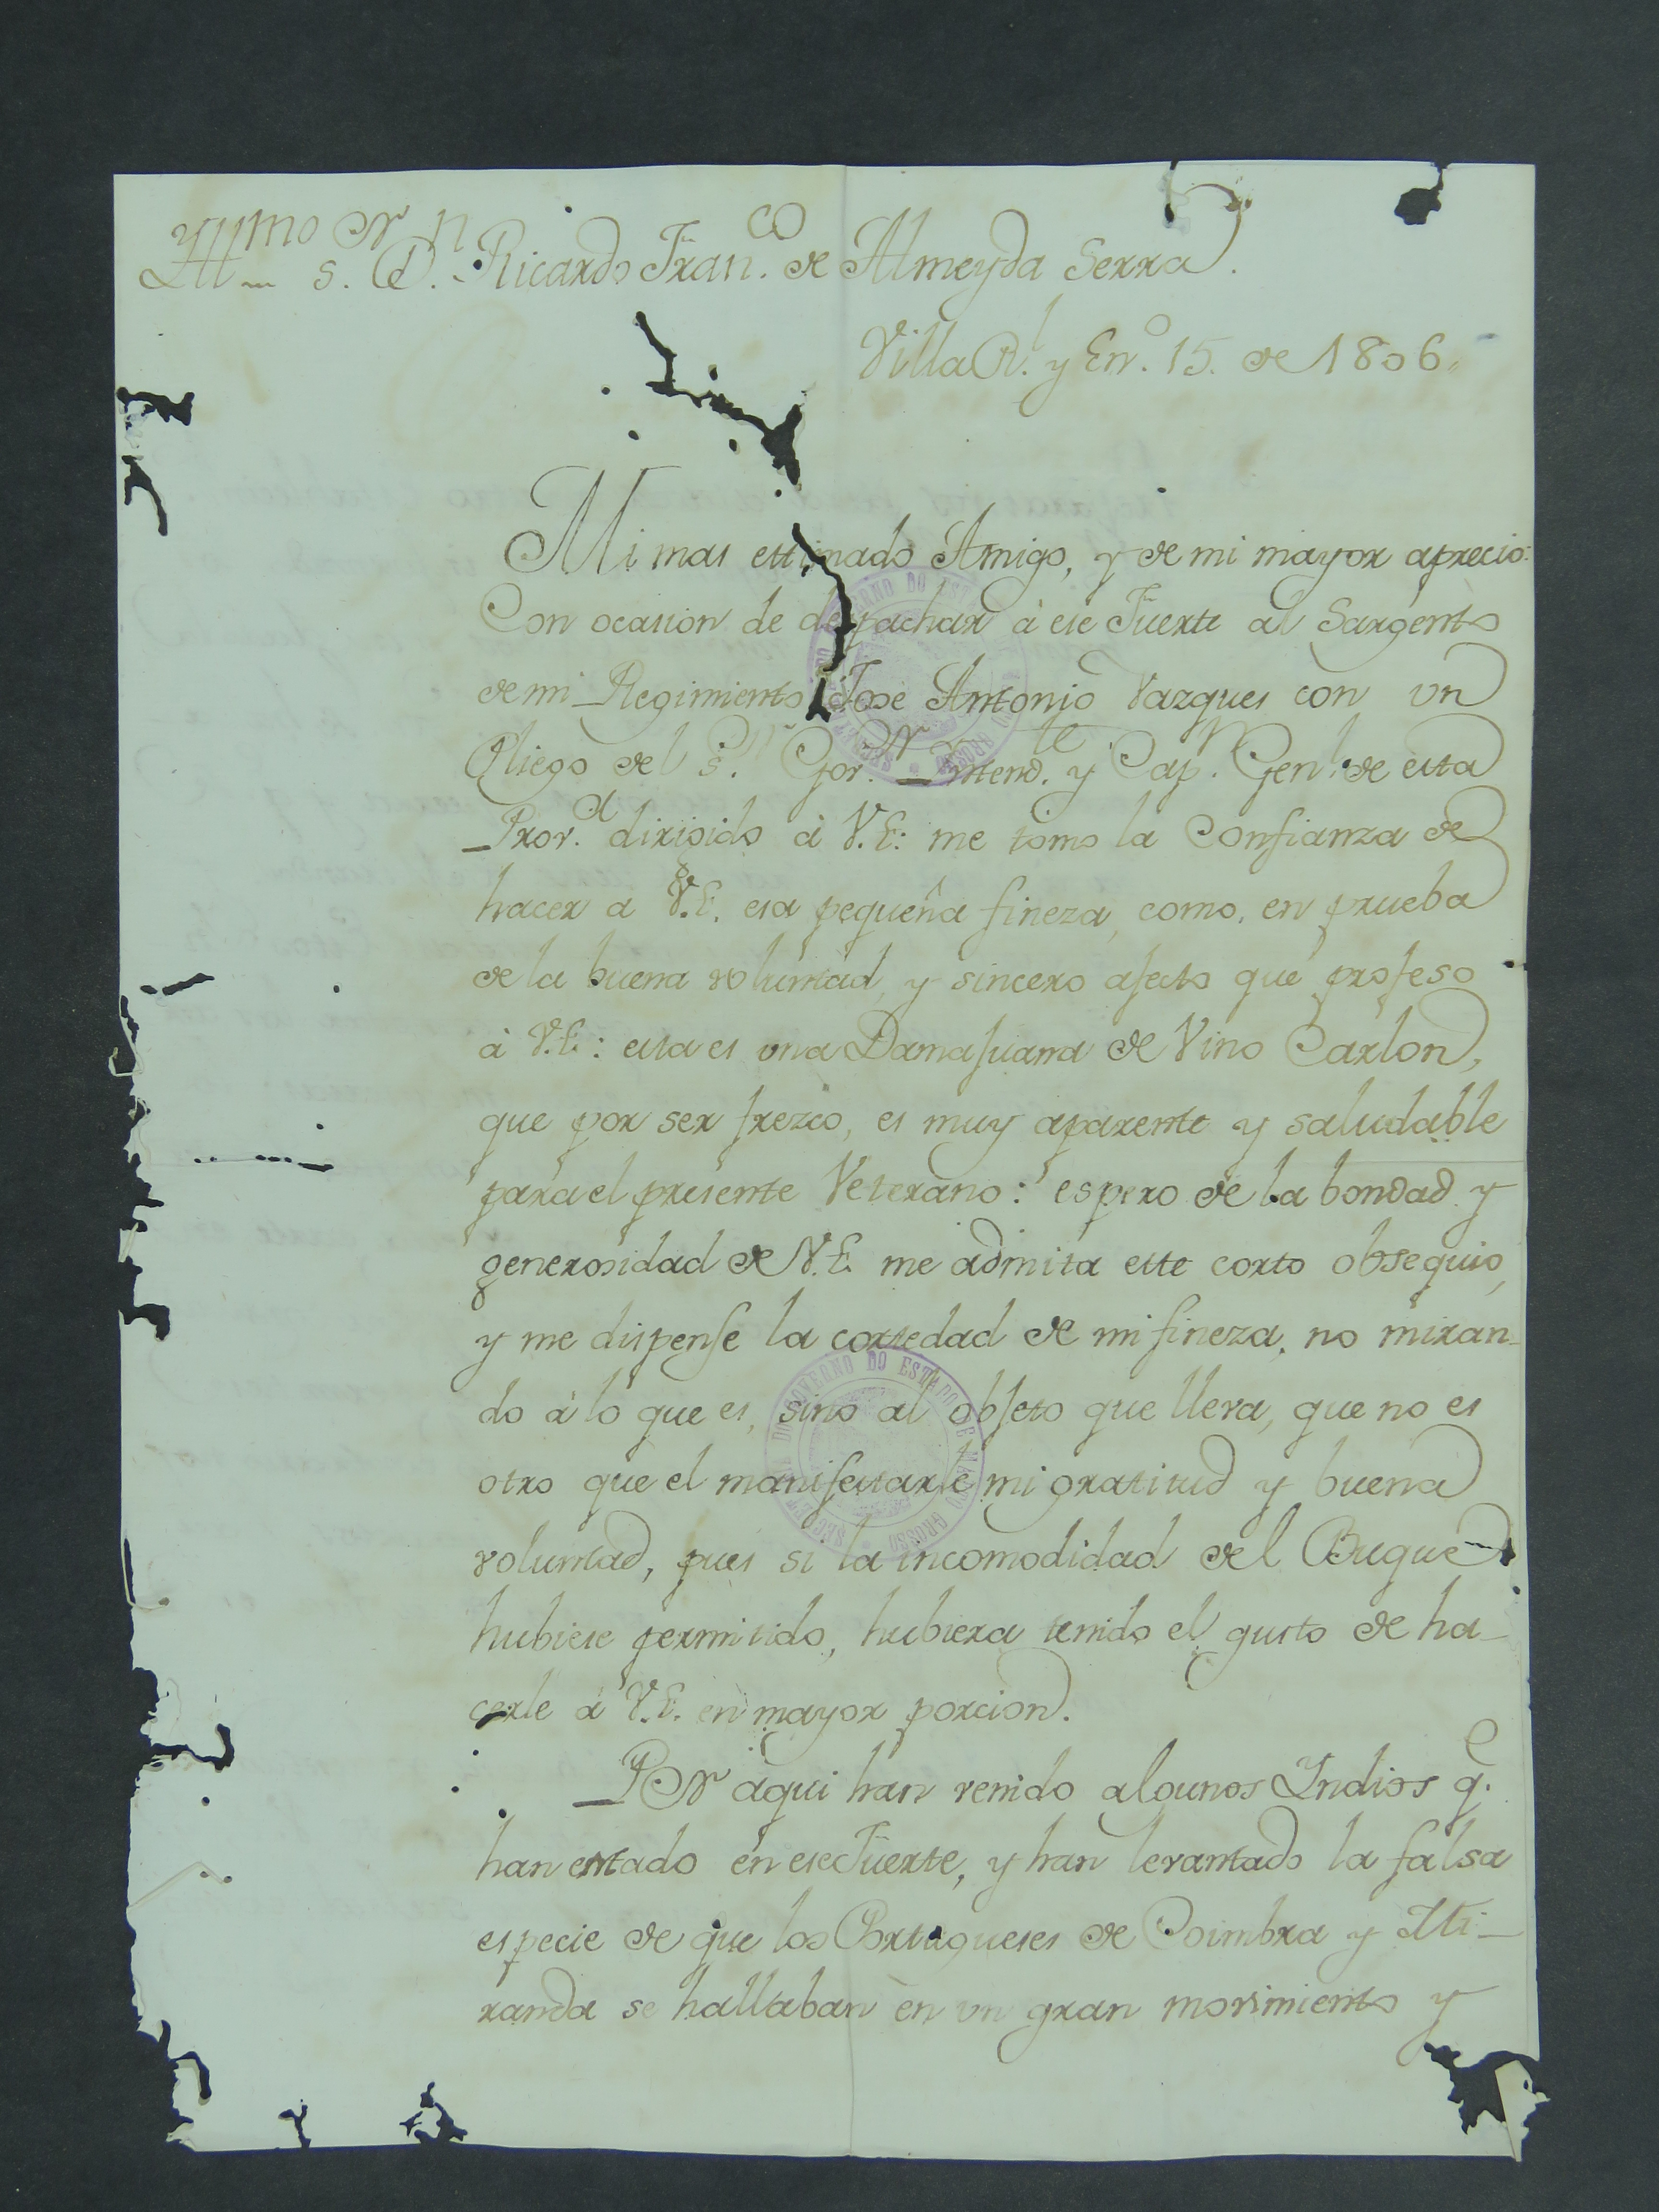 Yllmo Sr. Dn. Ricardo Franco. de Almeyda Serra.
Villa Rl. y Eno. 15. de 1806.
Mi mas estimado Amigo, y de mi mayor aprecio:
Con ocasion de despachar à ese Fuerte al Sargento
de mi Regimiento Jose Antonio Vazques con vn
Pliego del Sr. Gor. Intendte. y Capn. Genl. de esta
Prova. dirigido à V.E: me tomo la confianza de
hacer a V.E. esa pequeña fineza, como, en prueba
de la buena voluntad, y sincero afecto que profeso
à V.E.: esta es vna Damajuana de Vino Carlon,
que por ser frezco, es muy aparente y saludable
para el presente Veterano: espero de la bondad y
generosidad de V.E. me admita este corto obsequio,
y me dispense la cortedad de mi fineza, no miran-
do à lo que es, sino al objeto que lleva, que no es
otro que el manifestarle mi gratitud y buena
voluntad, pues si la incomodidad del Buque
hubiese permitido, hubiera tenido el gusto de ha-
cerle à V.E. en mayor porcion.
Por aqui han venido algunos Yndios qe.
han estado en ese Fuerte, y han levantado la falsa
especie de que los Portugueses de Coimbra y Mi-
randa se hallaban èn vn gran movimiento y